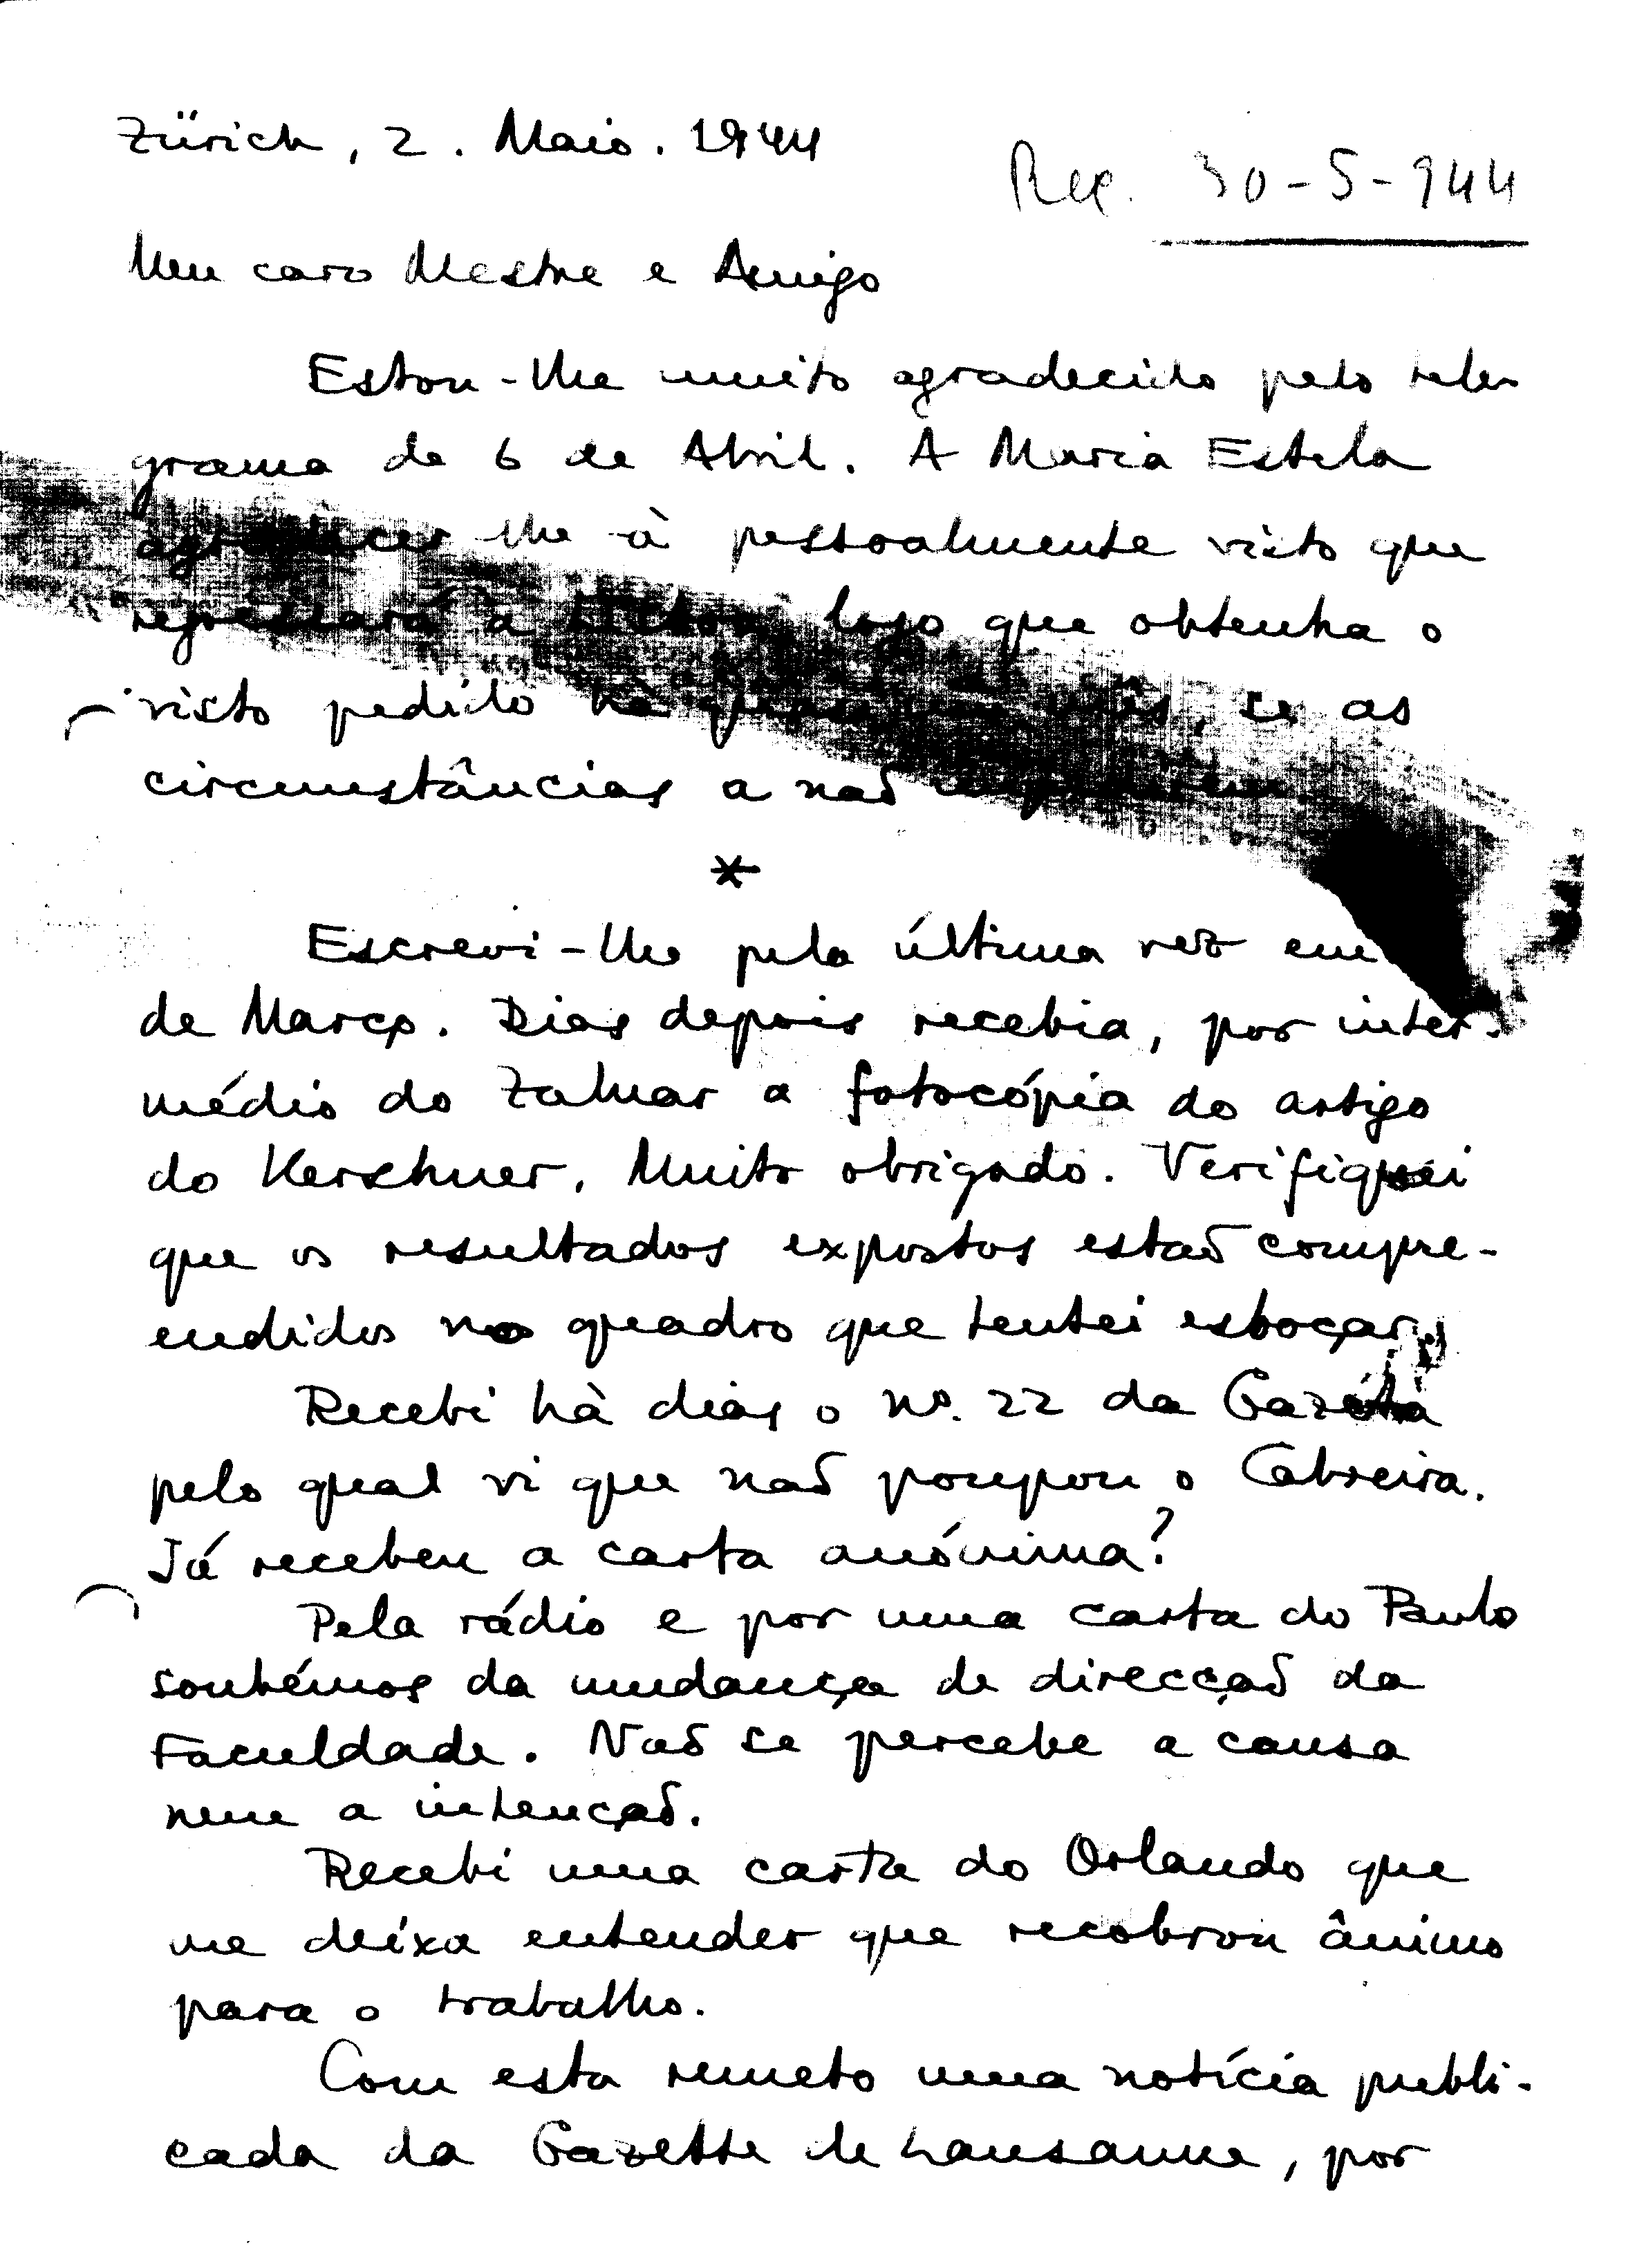 Zürich, 2. Maio. 1944
Rec. 30-5-944
Meu caro Mestre e Amigo
Estou-lhe muito agradecido pelo tele-
grama de 6 de Abril. A Maria Estela
agradecer-lhe-à pessoalmente visto que
regressará a Lisboa logo que obtenha o
visto pedido hà quasi um mês, se as
circumstâncias a naõ impedirem.
*
Escrevi-lhe pela última vez em
de Março. Dias depois recebia, por inter-
médio do Zaluar a fotocópia do artigo
do Kerschner. Muito obrigado. Verifiquei
que os resultados expostos estaõ compre-
endidos no quadro que tentei esboçar.
Recebi hà dias o nº. 22 da Gazeta
pelo qual vi que naõ poupou o Cabreira.
Já recebeu a carta anónima?
Pela rádio e por uma carta do Paulo
soubémos da mudança de direcçaõ da
Faculdade. Naõ se percebe a causa
nem a intençaõ.
Recebi uma carta do Orlando que
me deixa entender que recobrou ânimo
para o trabalho.
Com esta remeto uma notícia publi-
cada da Gazette de Lausanne, por